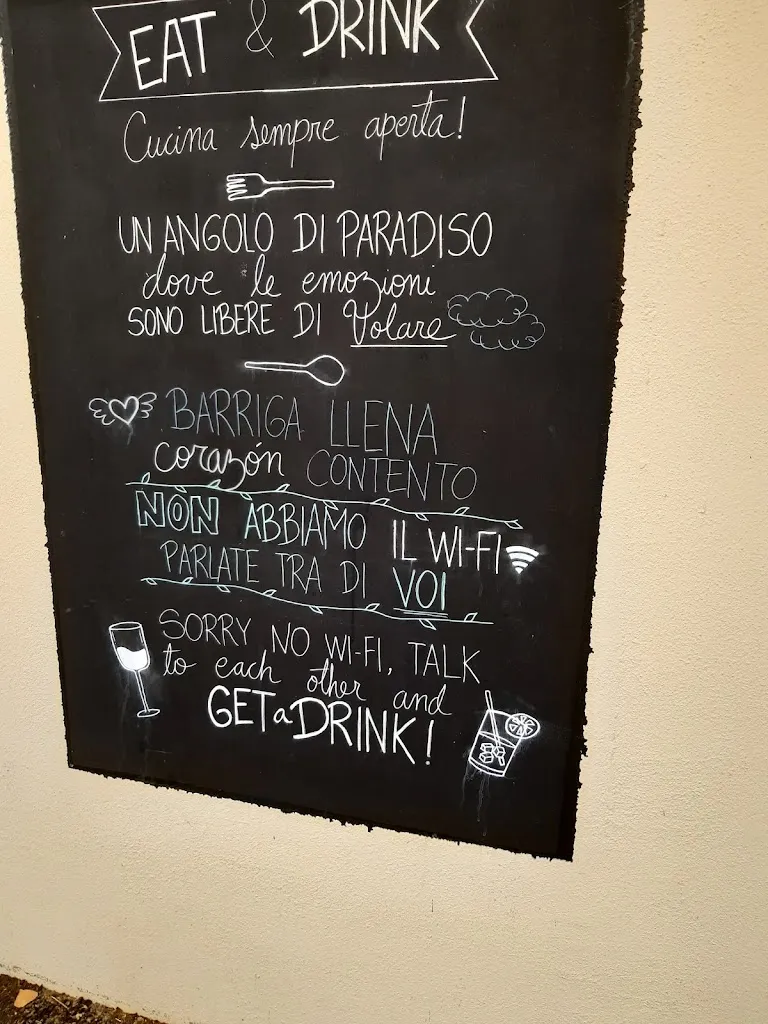 EAT & DRINK
Cucina sempre aperta!
UN ANGOLO DI PARADISO
dove le emozioni
SONO LIBERE DI Volare
BARRIGA LLENA
corazón CONTENTO
NON ABBIAMO IL WI-FI
PARLATE TRA DI VOI
SORRY NO WI-FI, TALK
to each other and
GET a DRINK!